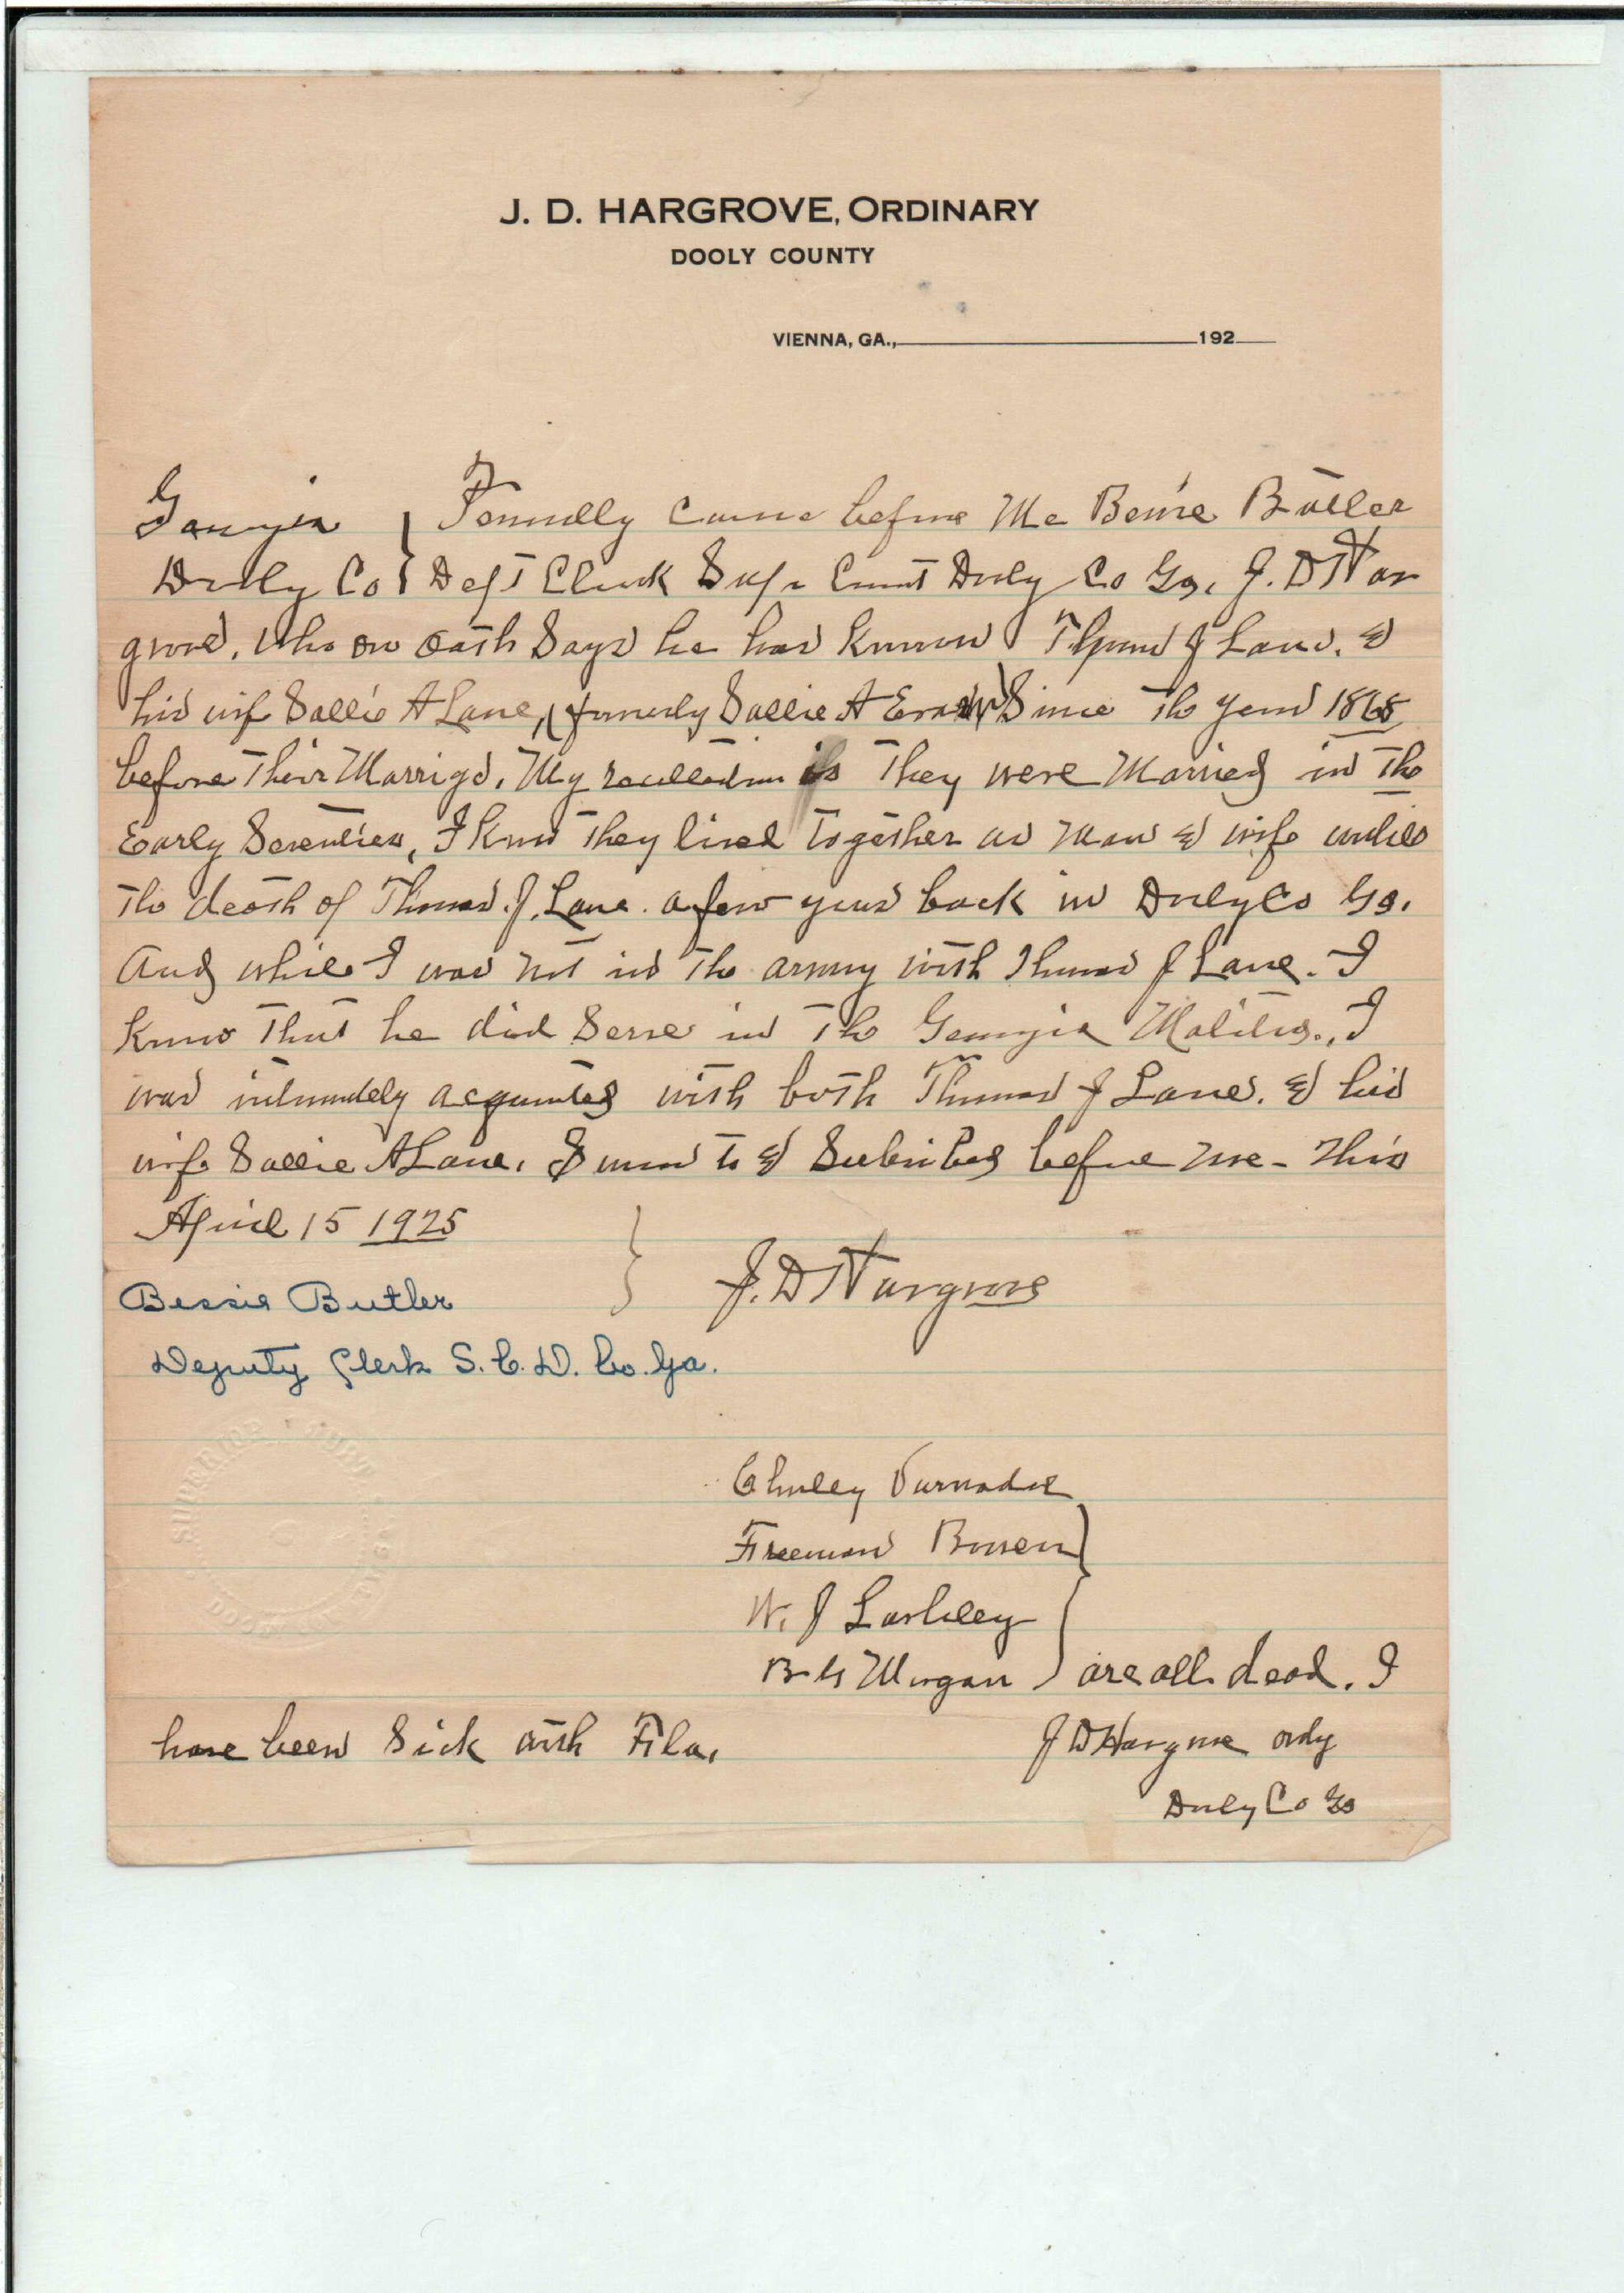 J. D. HARGROVE, ORDINARY
DOOLY COUNTY
VIENNA, GA., 192
Georgia } Personally came before Me Bessie Butler
Dooly Co } Dept Clerk Supr Court Dooly Co Ga, J. D Har
grove, Who on oath Says he has known Thomas J Lane, &
his wife Sallie A Lane, (formerly Sallie A ) Since the year 1868
before Their Marrige, My recollection is They were Married in the
Early Seventies, I know They lived Together as Man & wife untill
the death of Thomas J. Lane a few years back in Dooly Co Ga.
And while I was not in the army with Thomas J Lane. I
know That he did Serve in the Georgia I
was intimately acquainted with both Thomas J Lane, & his
wife Sallie A Lane, Sworn to & Subscribed before me - This
April 15 1925
Bessie Butler } J. D Hargrove
Deputy Clerk S. C. D. Co. Ga.
SUPERIOR
DOOLY
Varnadoe
Freeman Bowen
W. J Lashley
B G Morgan } are all dead. I
have been Sick with Flu,
J D Hargrove ordy
Dooly Co Ga